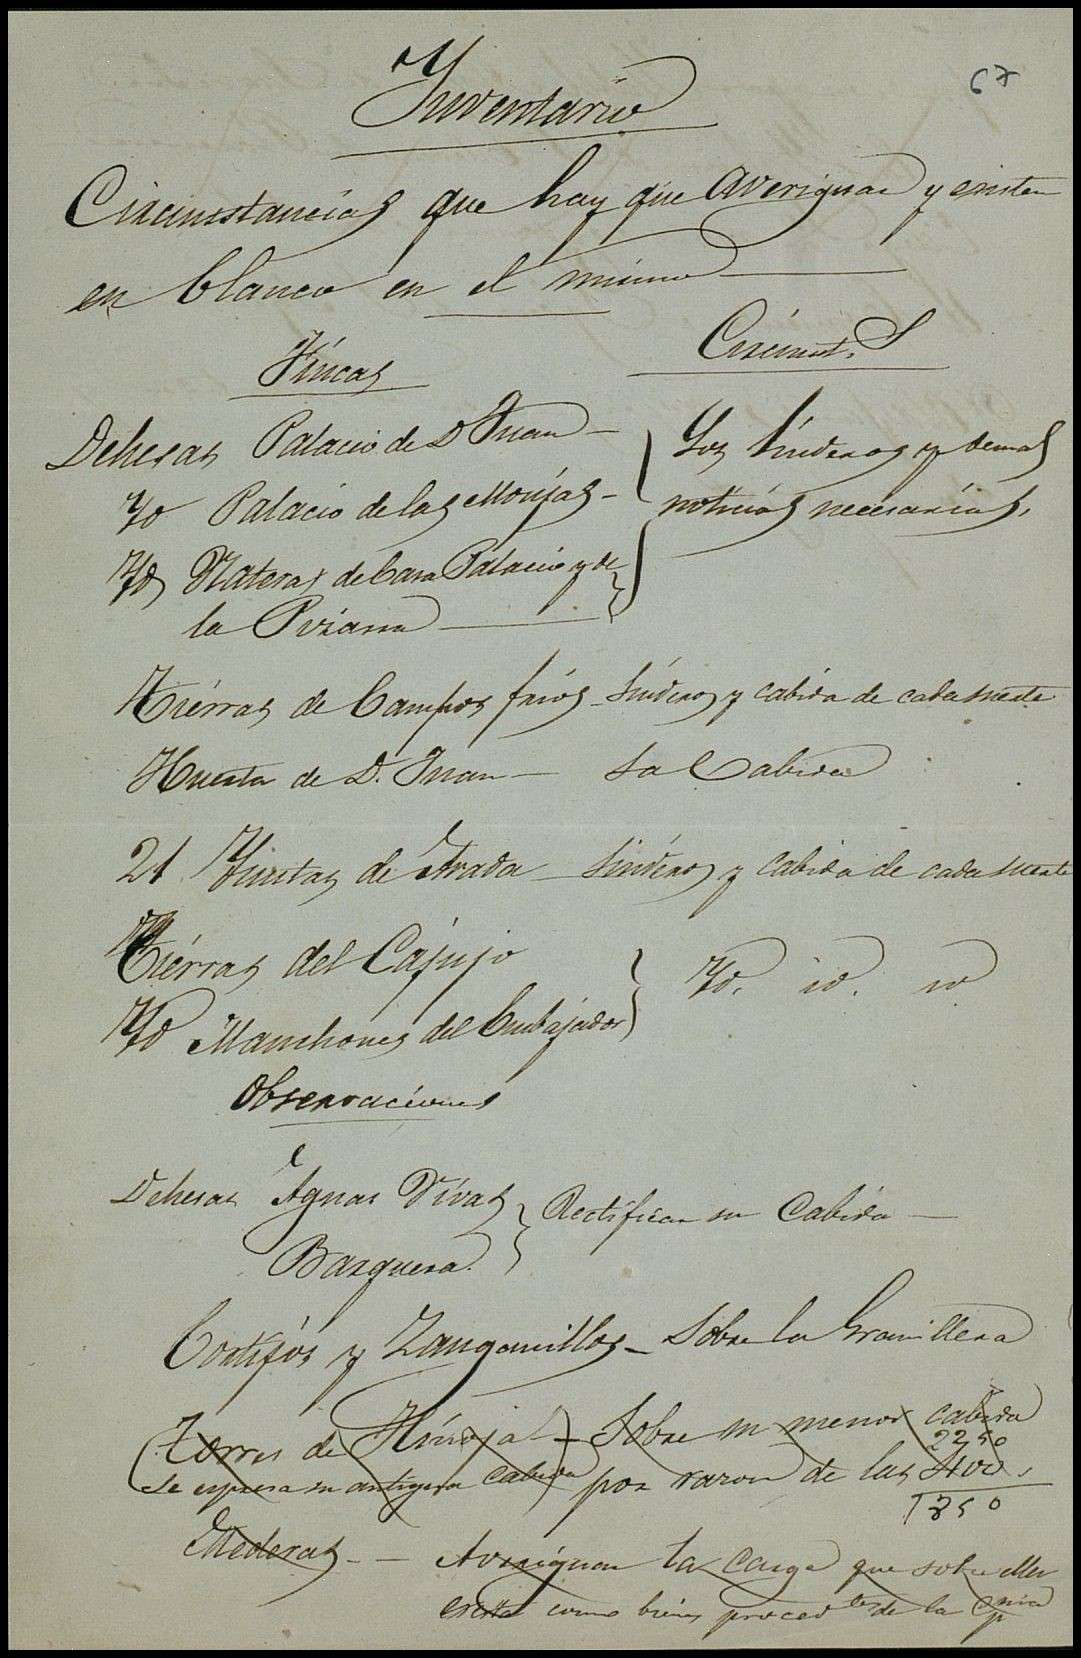 67
Inventario
Circunstancias que hay que averiguar y existen
en blanco en el mismo
Fincas
Circunst.s
Dehesas Palacio de D Juan
Los linderos y demas
Yd Palacio de las Monjas
noticias necesarias.
Yd Materas de Casa Palacio y de
la Pizarra
Tierras de Campos frios Linderos y cabida de cada suerte
Huerta de D. Juan La Cabida
21 Yuntas de Arada Linderos y cabida de cada suerte
Tierras del Cajujo
Yd. id. id
Yd Manchones del Embajador
Observaciones
Dehesas Aguas Vivas
Rectificar su Cabida
Barquera.
Cortijos y Zanganillos Sobre la Granillera
Torres de Hinojal Sobre su menor cabida
2250
Se espresa su antigua Cabida por razon de las 400.
1850
Mederas Averiguar la carga que sobre ella
existe como bienes proced.tes de la